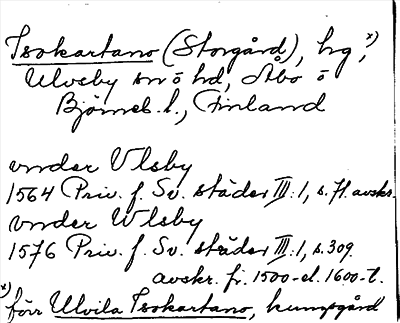 Isokartano (Storgård), hg,ˣ⁾
Ulvsby sn o hd, Åbo o
Björneb. l., Finland
under Ulsby
1564 Priv. f. Sv. städer III:1, s. 71. avskr.
under Wlsby
1576 Priv. f. Sv. städer III:1, s. 309.
avskr. fr. 1500- el. 1600-t.
x) förr Ulvila Isokartano, kungsgård